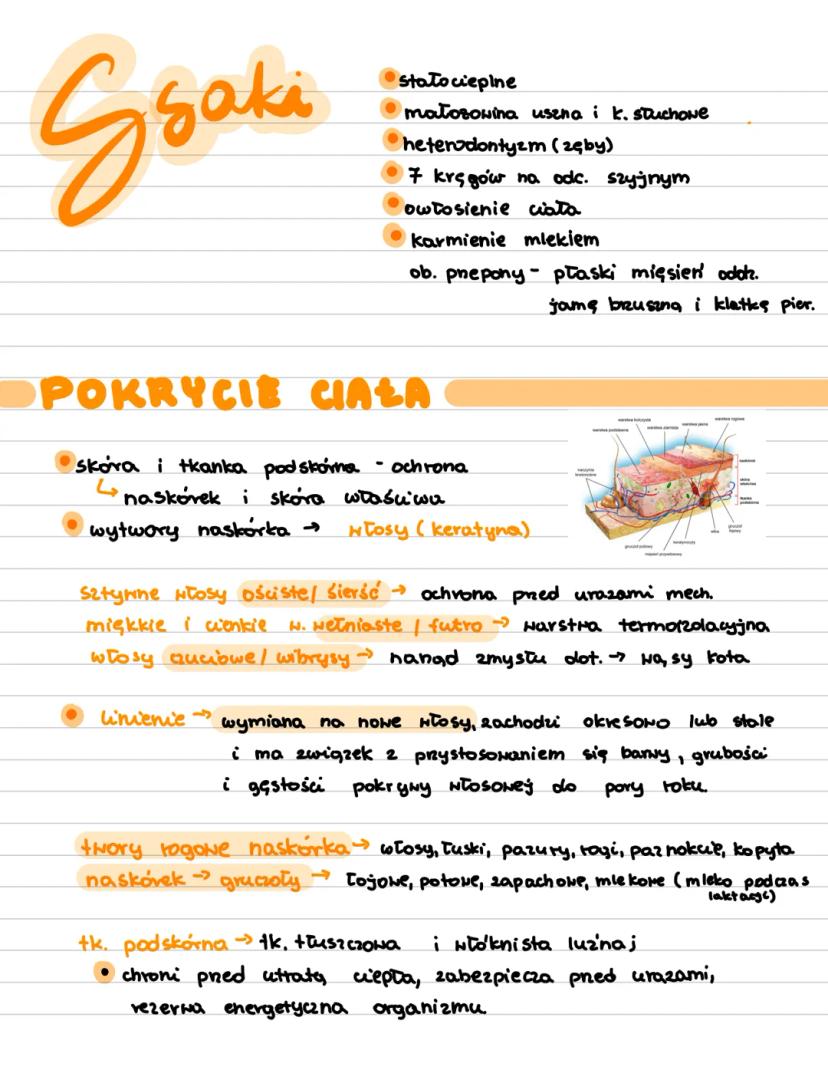 Ssaki
stałocieplne
małżowina uszna i k. słuchowe
heterodontyzm (zęby)
7 kręgów na odc. szyjnym
owłosienie ciała
karmienie mlekiem
ob. przepony - płaski mięsień oddz.
jamę brzuszną i klatkę pier.
POKRYCIE CIAŁA
skóra i tkanka podskórna - ochrona
↳ naskórek i skóra właściwa
wytwory naskórka → włosy (keratyna)
warstwa kolczysta
warstwa rogowa
warstwa podstawna
warstwa ziarnista
warstwa jasna
naskórek
skóra właściwa
tkanka podskórna
naczynia krwionośne
gruczoł potowy
mięsień przywłosowy
keratynocyty
włos
gruczoł łojowy
sztywne włosy ościste/ sierść → ochrona przed urazami mech.
miękkie i cienkie w. wełniaste / futro → warstwa termoizolacyjna
włosy czuciowe/ wibrysy → narząd zmysłu dot. → wąsy kota
linienie → wymiana na nowe włosy, zachodzi okresowo lub stale
i ma związek z przystosowaniem się barwy, grubości
i gęstości pokrywy włosowej do pory roku.
twory rogowe naskórka → włosy, łuski, pazury, rogi, paznokcie, kopyta
naskórek → gruczoły → łojowe, potowe, zapachowe, mlekowe (mleko podczas
laktacji)
tk. podskórna → tk. tłuszczowa i włóknista luźnaj
chroni przed utratą ciepła, zabezpiecza przed urazami,
rezerwa energetyczna organizmu.